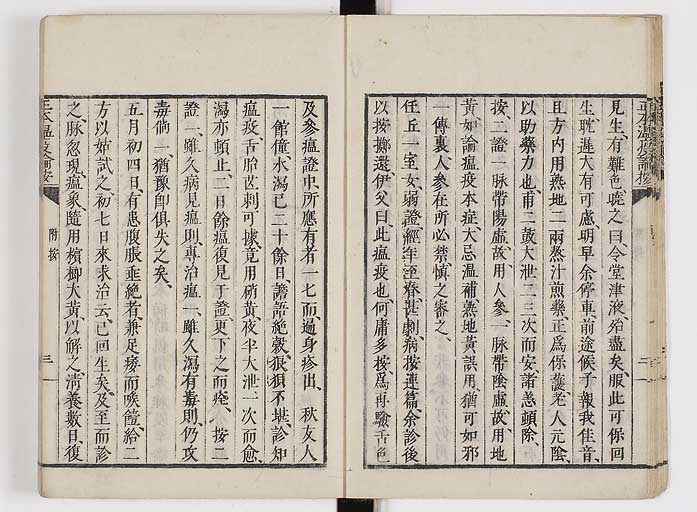 見生、有難色、曉之曰、令堂津液殆盡矣、服此可保回
生、耽遲大有可慮、明早余停車、前途候子報我佳音、
且方内用熟地二兩蒸汁煎藥、正爲保護老人元陰
以助藥力也、甫二鼓大泄二三次而安、諸恙頓除、
按二證一脉帶陽虛、故用人參、一脉帶陰虛、故用地
黃、如論瘟疫本症、大忌温補、熟地黃誤用、猶可如邪
一傳裏、人參在所必禁、愼之審之、
任丘一室女、弱證、經年至脊甚劇、病按連篇、余診後
以按擲還、伊父曰、此瘟疫也、何庸多按爲、再驗舌色
及參瘟證中所應有者一七而遍身疹出、 秋友人
一館僮、水瀉已二十餘日、譫語絶穀、狼狽不堪、診知
瘟疫、舌胎芒刺可據、竟用硝黃、夜半大泄一次而愈、
瀉亦頓止、二日餘瘟復見于證、更下之而痊、 按二
證一、雖久病見瘟則、專治瘟一、雖久瀉有毒則、仍攻
毒倘一、猶豫卽俱失之矣、
五月初四日、有患腹脹垂絶者、兼足痿而喉饐、給二
方以姑試之、初七日來求治云、已回生矣、及至而診
之、脉忽現瘟象、隨用檳榔大黃以解之、淸養數日、復
正本瘟疫論按
附按
三